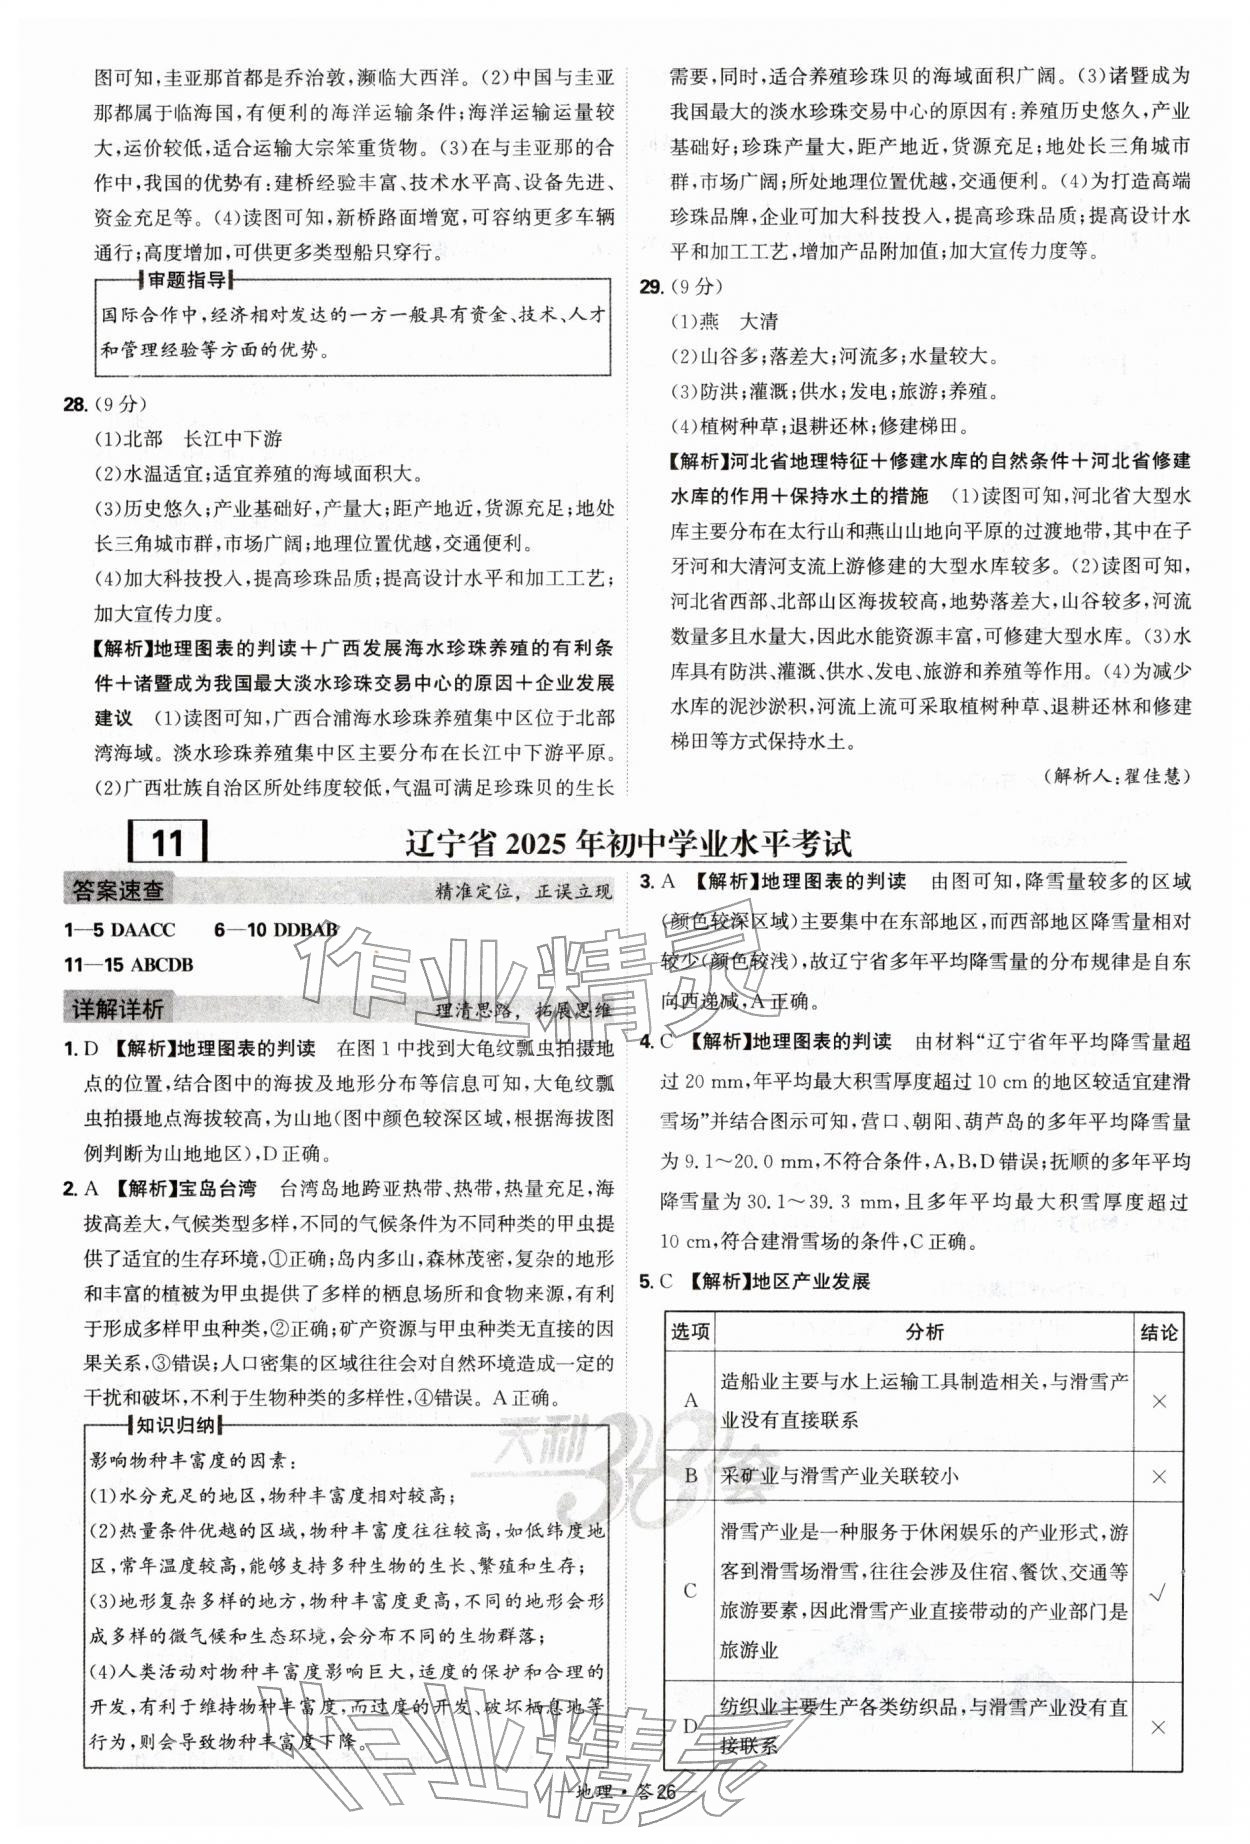 图可知,圭亚那首都是乔治敦,濒临大西洋。(2)中国与圭亚
那都属于临海国,有便利的海洋运输条件;海洋运输运量较
大,运价较低,适合运输大宗笨重货物。(3)在与圭亚那的合
作中,我国的优势有:建桥经验丰富、技术水平高、设备先进、
资金充足等。(4)读图可知,新桥路面增宽,可容纳更多车辆
通行;高度增加,可供更多类型船只穿行。
审题指导
国际合作中,经济相对发达的一方一般具有资金、技术、人才
和管理经验等方面的优势。
28.(9分)
(1)北部　长江中下游
(2)水温适宜;适宜养殖的海域面积大。
(3)历史悠久;产业基础好,产量大;距产地近,货源充足;地处
长三角城市群,市场广阔;地理位置优越,交通便利。
(4)加大科技投入,提高珍珠品质;提高设计水平和加工工艺;
加大宣传力度。
【解析】地理图表的判读＋广西发展海水珍珠养殖的有利条
件＋诸暨成为我国最大淡水珍珠交易中心的原因＋企业发展
建议　(1)读图可知,广西合浦海水珍珠养殖集中区位于北部
湾海域。淡水珍珠养殖集中区主要分布在长江中下游平原。
(2)广西壮族自治区所处纬度较低,气温可满足珍珠贝的生长
需要,同时,适合养殖珍珠贝的海域面积广阔。(3)诸暨成为
我国最大的淡水珍珠交易中心的原因有:养殖历史悠久,产业
基础好;珍珠产量大,距产地近,货源充足;地处长三角城市
群,市场广阔;所处地理位置优越,交通便利。(4)为打造高端
珍珠品牌,企业可加大科技投入,提高珍珠品质;提高设计水
平和加工工艺,增加产品附加值;加大宣传力度等。
29.(9分)
(1)燕　大清
(2)山谷多;落差大;河流多;水量较大。
(3)防洪;灌溉;供水;发电;旅游;养殖。
(4)植树种草;退耕还林;修建梯田。
【解析】河北省地理特征＋修建水库的自然条件＋河北省修建
水库的作用＋保持水土的措施　(1)读图可知,河北省大型水
库主要分布在太行山和燕山山地向平原的过渡地带,其中在子
牙河和大清河支流上游修建的大型水库较多。(2)读图可知,
河北省西部、北部山区海拔较高,地势落差大,山谷较多,河流
数量多且水量大,因此水能资源丰富,可修建大型水库。(3)水
库具有防洪、灌溉、供水、发电、旅游和养殖等作用。(4)为减少
水库的泥沙淤积,河流上流可采取植树种草、退耕还林和修建
梯田等方式保持水土。
(解析人:翟佳慧)
11 辽宁省2025年初中学业水平考试
答案速查 精准定位，正误立现
1—5 DAACC　6—10 DDBAB
11—15 ABCDB
详解详析 理清思路，拓展思维
1. D 【解析】地理图表的判读　在图1中找到大龟纹瓢虫拍摄地
点的位置,结合图中的海拔及地形分布等信息可知,大龟纹瓢
虫拍摄地点海拔较高,为山地(图中颜色较深区域,根据海拔图
例判断为山地地区),D正确。
2. A 【解析】宝岛台湾　台湾岛地跨亚热带、热带,热量充足,海
拔高差大,气候类型多样,不同的气候条件为不同种类的甲虫提
供了适宜的生存环境,①正确;岛内多山,森林茂密,复杂的地形
和丰富的植被为甲虫提供了多样的栖息场所和食物来源,有利
于形成多样甲虫种类,②正确;矿产资源与甲虫种类无直接的因
果关系,③错误;人口密集的区域往往会对自然环境造成一定的
干扰和破坏,不利于生物种类的多样性,④错误。A正确。
知识归纳
影响物种丰富度的因素:
(1)水分充足的地区,物种丰富度相对较高;
(2)热量条件优越的区域,物种丰富度往往较高,如低纬度地
区,常年温度较高,能够支持多种生物的生长、繁殖和生存;
(3)地形复杂多样的地方,物种丰富度更高,不同的地形会形
成多样的微气候和生态环境,会分布不同的生物群落;
(4)人类活动对物种丰富度影响巨大,适度的保护和合理的
开发,有利于维持物种丰富度,而过度的开发、破坏栖息地等
行为,则会导致物种丰富度下降。
3. A 【解析】地理图表的判读　由图可知,降雪量较多的区域
(颜色较深区域)主要集中在东部地区,而西部地区降雪量相对
较少(颜色较浅),故辽宁省多年平均降雪量的分布规律是自东
向西递减,A正确。
4. C 【解析】地理图表的判读　由材料“辽宁省年平均降雪量超
过20 mm,年平均最大积雪厚度超过10 cm的地区较适宜建滑
雪场”并结合图示可知,营口、朝阳、葫芦岛的多年平均降雪量
为9.1～20.0 mm,不符合条件,A,B,D错误;抚顺的多年平均
降雪量为30.1～39.3 mm,且多年平均最大积雪厚度超过
10 cm,符合建滑雪场的条件,C正确。
5. C 【解析】地区产业发展
选项 分析 结论
A 造船业主要与水上运输工具制造相关,与滑雪产
业没有直接联系 ×
B 采矿业与滑雪产业关联较小 ×
C 滑雪产业是一种服务于休闲娱乐的产业形式,游
客到滑雪场滑雪,往往会涉及住宿、餐饮、交通等
旅游要素,因此滑雪产业直接带动的产业部门是
旅游业 √
D 纺织业主要生产各类纺织品,与滑雪产业没有直
接联系 ×
作业精灵
天利38套
作业精灵
—地理·答26—